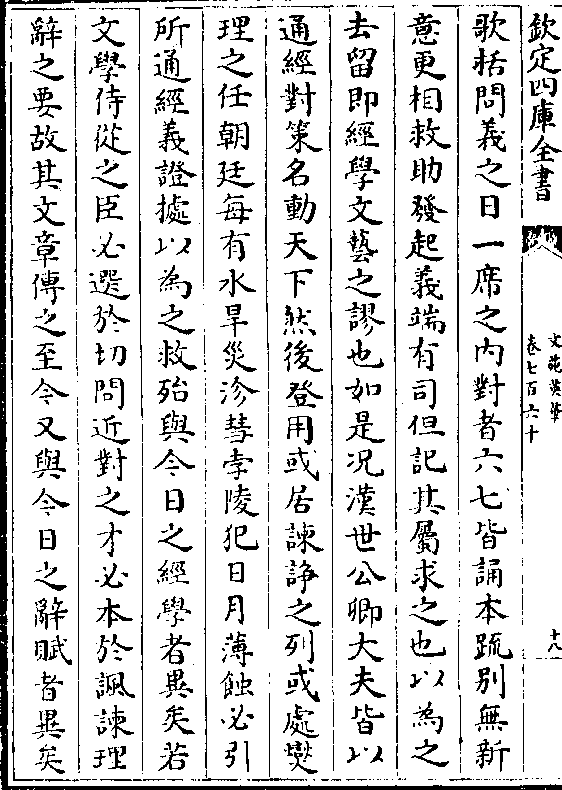 欽定四庫全書
文苑英華
卷七百六十
十八
歌括問義之日一席之内對者六七皆誦本䟽别無新
意更相救助發起義端有司但記其屬求之也以為之
去留即經學文藝之謬也如是况漢世公卿大夫皆以
通經對策名動天下然後登用或居諫諍之列或處爕
理之任朝廷每有水旱災沴彗孛陵犯日月薄蝕必引
所通經義證據以為之救殆與今日之經學者異矣若
文學侍從之臣必選於切問近對之才必本於諷諫理
辭之要故其文章傳之至今又與今日之辭賦者異矣